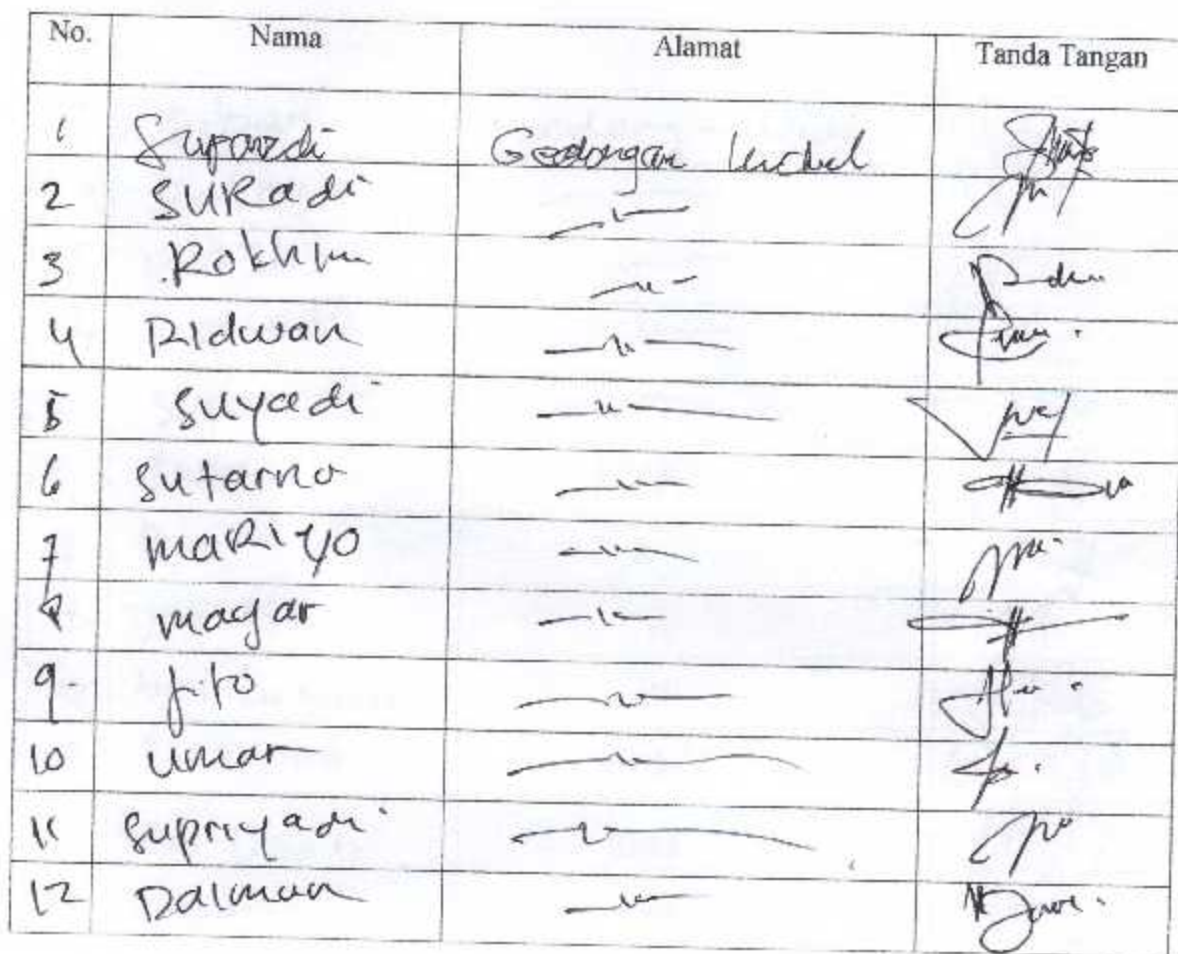 No. Nama Alamat Tanda Tangan
1 Supardi Gedongan
2 SURadi
3 Rokhim
4 RIdwan
5 Suyadi
6 Sutarno
7 MaRiyo
8 magar
9. jito
10 umar
11 Supriyadi
12 Dalman